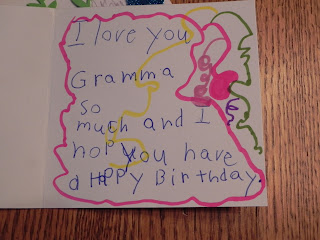 I love you
Gramma
so
much and I
hop you have
a HAppy Birthday.